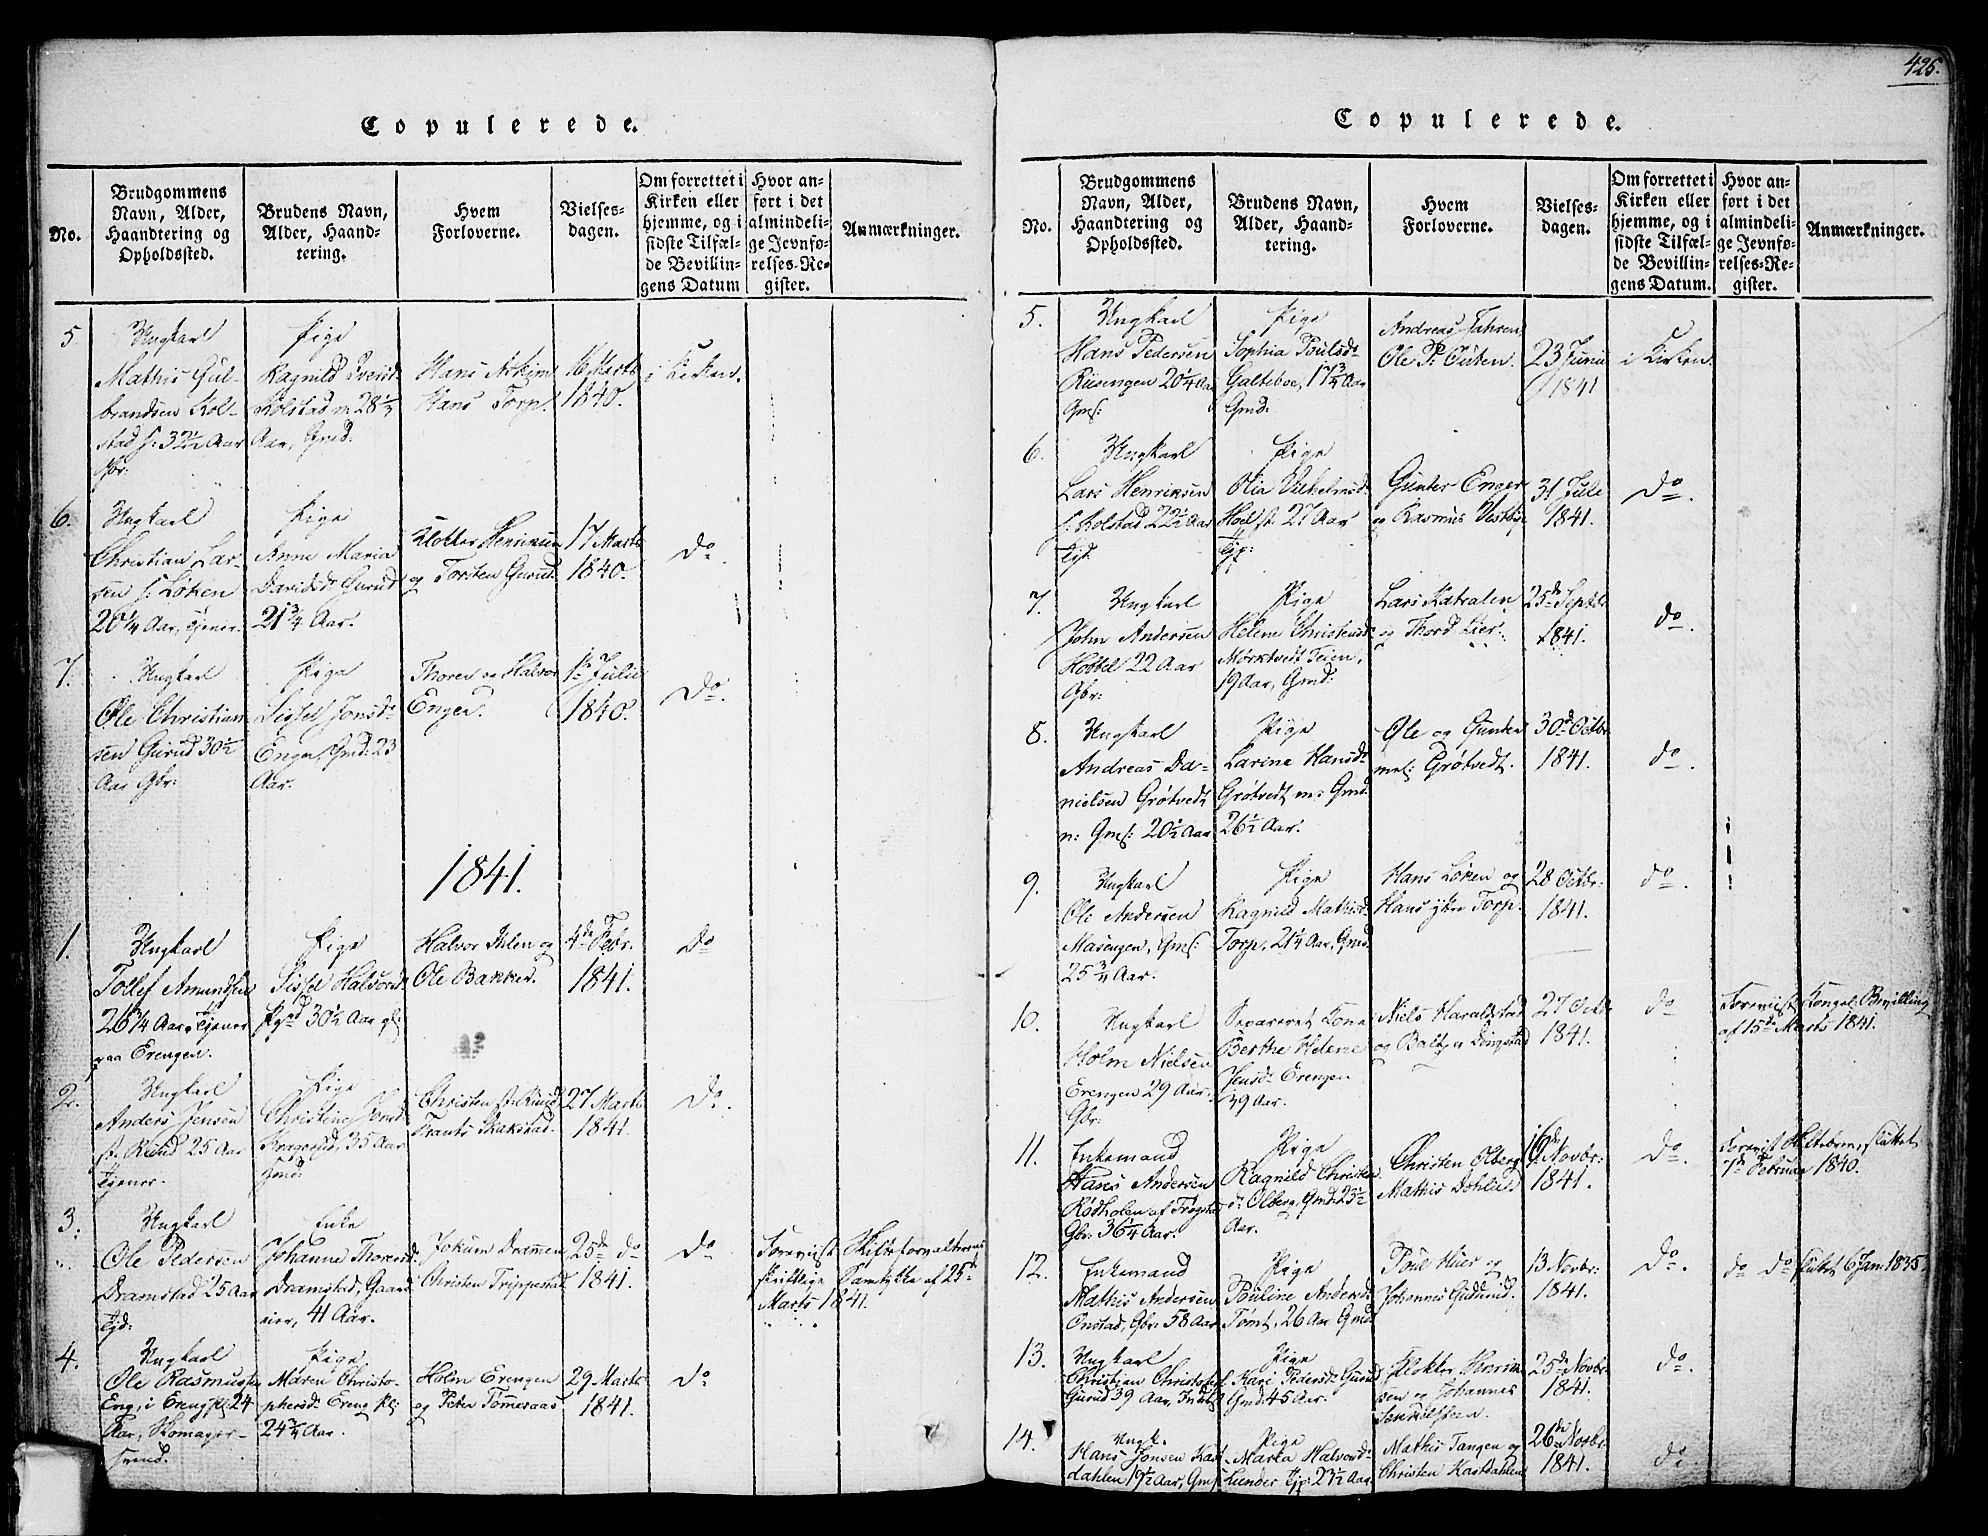 425.
Copulerede.
No.
Brudgommens
Navn, Alder,
Haandtering og
Opholdssted.
Brudens Navn,
Alder, Haand-
tering.
Hvem
Forloverne.
Vielses-
dagen.
Om forrettet i
Kirken eller
hjemme, og i
sidste Tilfæl-
de Bevillin-
gens Datum
Hvor an-
ført i det
almindeli-
ge Jevnfø-
relses-Re-
gister.
Anmærkninger.
5
Ungkarl
Mathis Gul-
brandsen Kol-
stad s: 37½ Aar
Gbr:
Pige
Ragnild Iversd:
Kolstad n: 28¼
Aar, Gmd:
Hans Askim
Hans Torp.
16 Marts
1840.
i Kirken.
6.
Ungkarl
Christian Lar-
sen s: Løken
20¼ Aar, Tjener.
Pige
Anne Maria
Davidsd: Gurud
21¾ Aar.
Klokker Henriksen
og Torsten Gurud.
17 Marts
1840.
Do
7.
Ungkarl
Ole Christian-
sen Gurud 30½
Aar Gbr:
Pige
Sissel Jonsd:
Enger, Gmd: 23
Aar.
Thoren og Halvor
Enger.
1ste Julii
1840.
Do
1841.
1.
Ungkarl
Tollef Amundsen
26¼ Aar, Tjener
paa Erengen.
Pige
Sissel Halvorsd:
30½ Aar
Halvor Ihlen og
Ole Bakker.
4de Febr.
1841.
Do
2.
Ungkarl
Anders Jensen
st: Ruud 25 Aar
Tjener.
Pige
Christine
Kragerud, 35 Aar
Gmd.
Christen st: Ruud
Frants Skakstad.
27 Marts
1841.
Do.
3.
Ungkarl
Ole Pedersen
Dramstad 25 Aar
Tjd:
Enke
Johanne Thoresd:
Dramstad, Gaard-
eier, 41 Aar.
Jokum Dramen
Christen Trippestad
25de do
1841.
Do
Forevist Skifteforvalterens
skriftlige Samtykke af 25de
Marts 1841.
4.
Ungkarl
Ole Rasmussen
Eng, i Ereng pl: 24
Aar, Skomager-
svend.
Pige
Maren Christo-
phersd: Ereng pl:
24¾ Aar.
Holm Erengen
og Peter Tømeraas
29 Marts
1841.
Do
Copulerede.
No.
Brudgommens
Navn, Alder,
Haandtering og
Opholdssted.
Brudens Navn,
Alder, Haand-
tering.
Hvem
Forloverne.
Vielses-
dagen.
Om forrettet i
Kirken eller
hjemme, og i
sidste Tilfæl-
de Bevillin-
gens Datum.
Hvor an-
ført i det
almindeli-
ge Jevnfø-
relses-Re-
gister.
Anmærkninger.
5.
Ungkarl
Hans Pedersen
Riisengen 20¼ Aar
Gms:
Pige
Sophia Poulsd:
Galteboe, 17¾ Aar
Gmd:
Andreas
Ole P:
23 Junii
1841
i Kirken.
6.
Ungkarl
Lars Henriksen
s: Kolstad 22½ Aar
Tjd.
Pige
Olia Vilhelmsd:
Hoel st: 27 Aar
Tjp:
Gunter Enger
og Rasmus Vestbye
31 Julii
1841.
Do.
7.
Ungkarl
John Andersen
Hobbel 22 Aar
Gbr:
Pige
Helene Christensd:
Mørktvedt Teien,
19 Aar, Gmd:
Lars Katralen
og Thord Lier.
25de Septbr:
1841.
do.
8.
Ungkarl
Andreas Da-
nielsen Grøtvedt
n: Gms: 20½ Aar
Pige
Larine Hansd:
Grøtvedt m: Gmd.
26½ Aar.
Ole og Gunter
Grøtvedt.
30de Octbr
1841.
do.
9.
Ungkarl
Ole Andersen
Masengen, Gms:
25¾ Aar.
Pige
Ragnild Mathisd:
Torp, 21¼ Aar, Gmd.
Hans Løken og
Hans Torp.
28 Octbr:
1841.
do.
10.
Ungkarl
Holm Nielsen
Erengen 29 Aar,
Gbr:
Separeret Kone
Berthe Helene
Jensd: Erengen
39 Aar.
Niels Haraldstad
og Dingstad
27 Octbr
1841.
do
Forevist Kongel: Bevilling
af 15de Marts 1841.
11.
Enkemand
Hans Andersen
Rødholen af Trøgstad
Gbr: 36¼ Aar.
Pige
Ragnild Christen
d: Olberg, Gmd: 23½
Aar.
Christen Olberg
Mathis Dohlie.
6de Novbr:
1841.
Do.
Forevist Skiftebrev, sluttet
Februar 1840.
12.
Enkemand
Mathis Andersen
Onstad, Gbr: 58 Aar
Pige
Pouline Andersd:
Tømt, 26 Aar Gmd
Poul Huer og
Johannes Gudmd.
13 Novbr:
1841.
Do.
do do sluttet 6 Jan: 1835
13.
Ungkarl
Christian Christophers:
Gurud 39 Aar,
Pige
Kari Pedersd: Gurud
Gmd: 45 Aar.
Klokker Henrik-
sen og Johannes
25de Novbr
1841.
do.
14.
Ungk.
Hans Jonsen Kast-
dahlen 19½ Aar, Gms:
Pige
Marta Halvorsd:
Lunder Tjp: 23½ Aar
Mathis Tangen og
Christen Kastdahlen
26de Novbr
1841.
do.